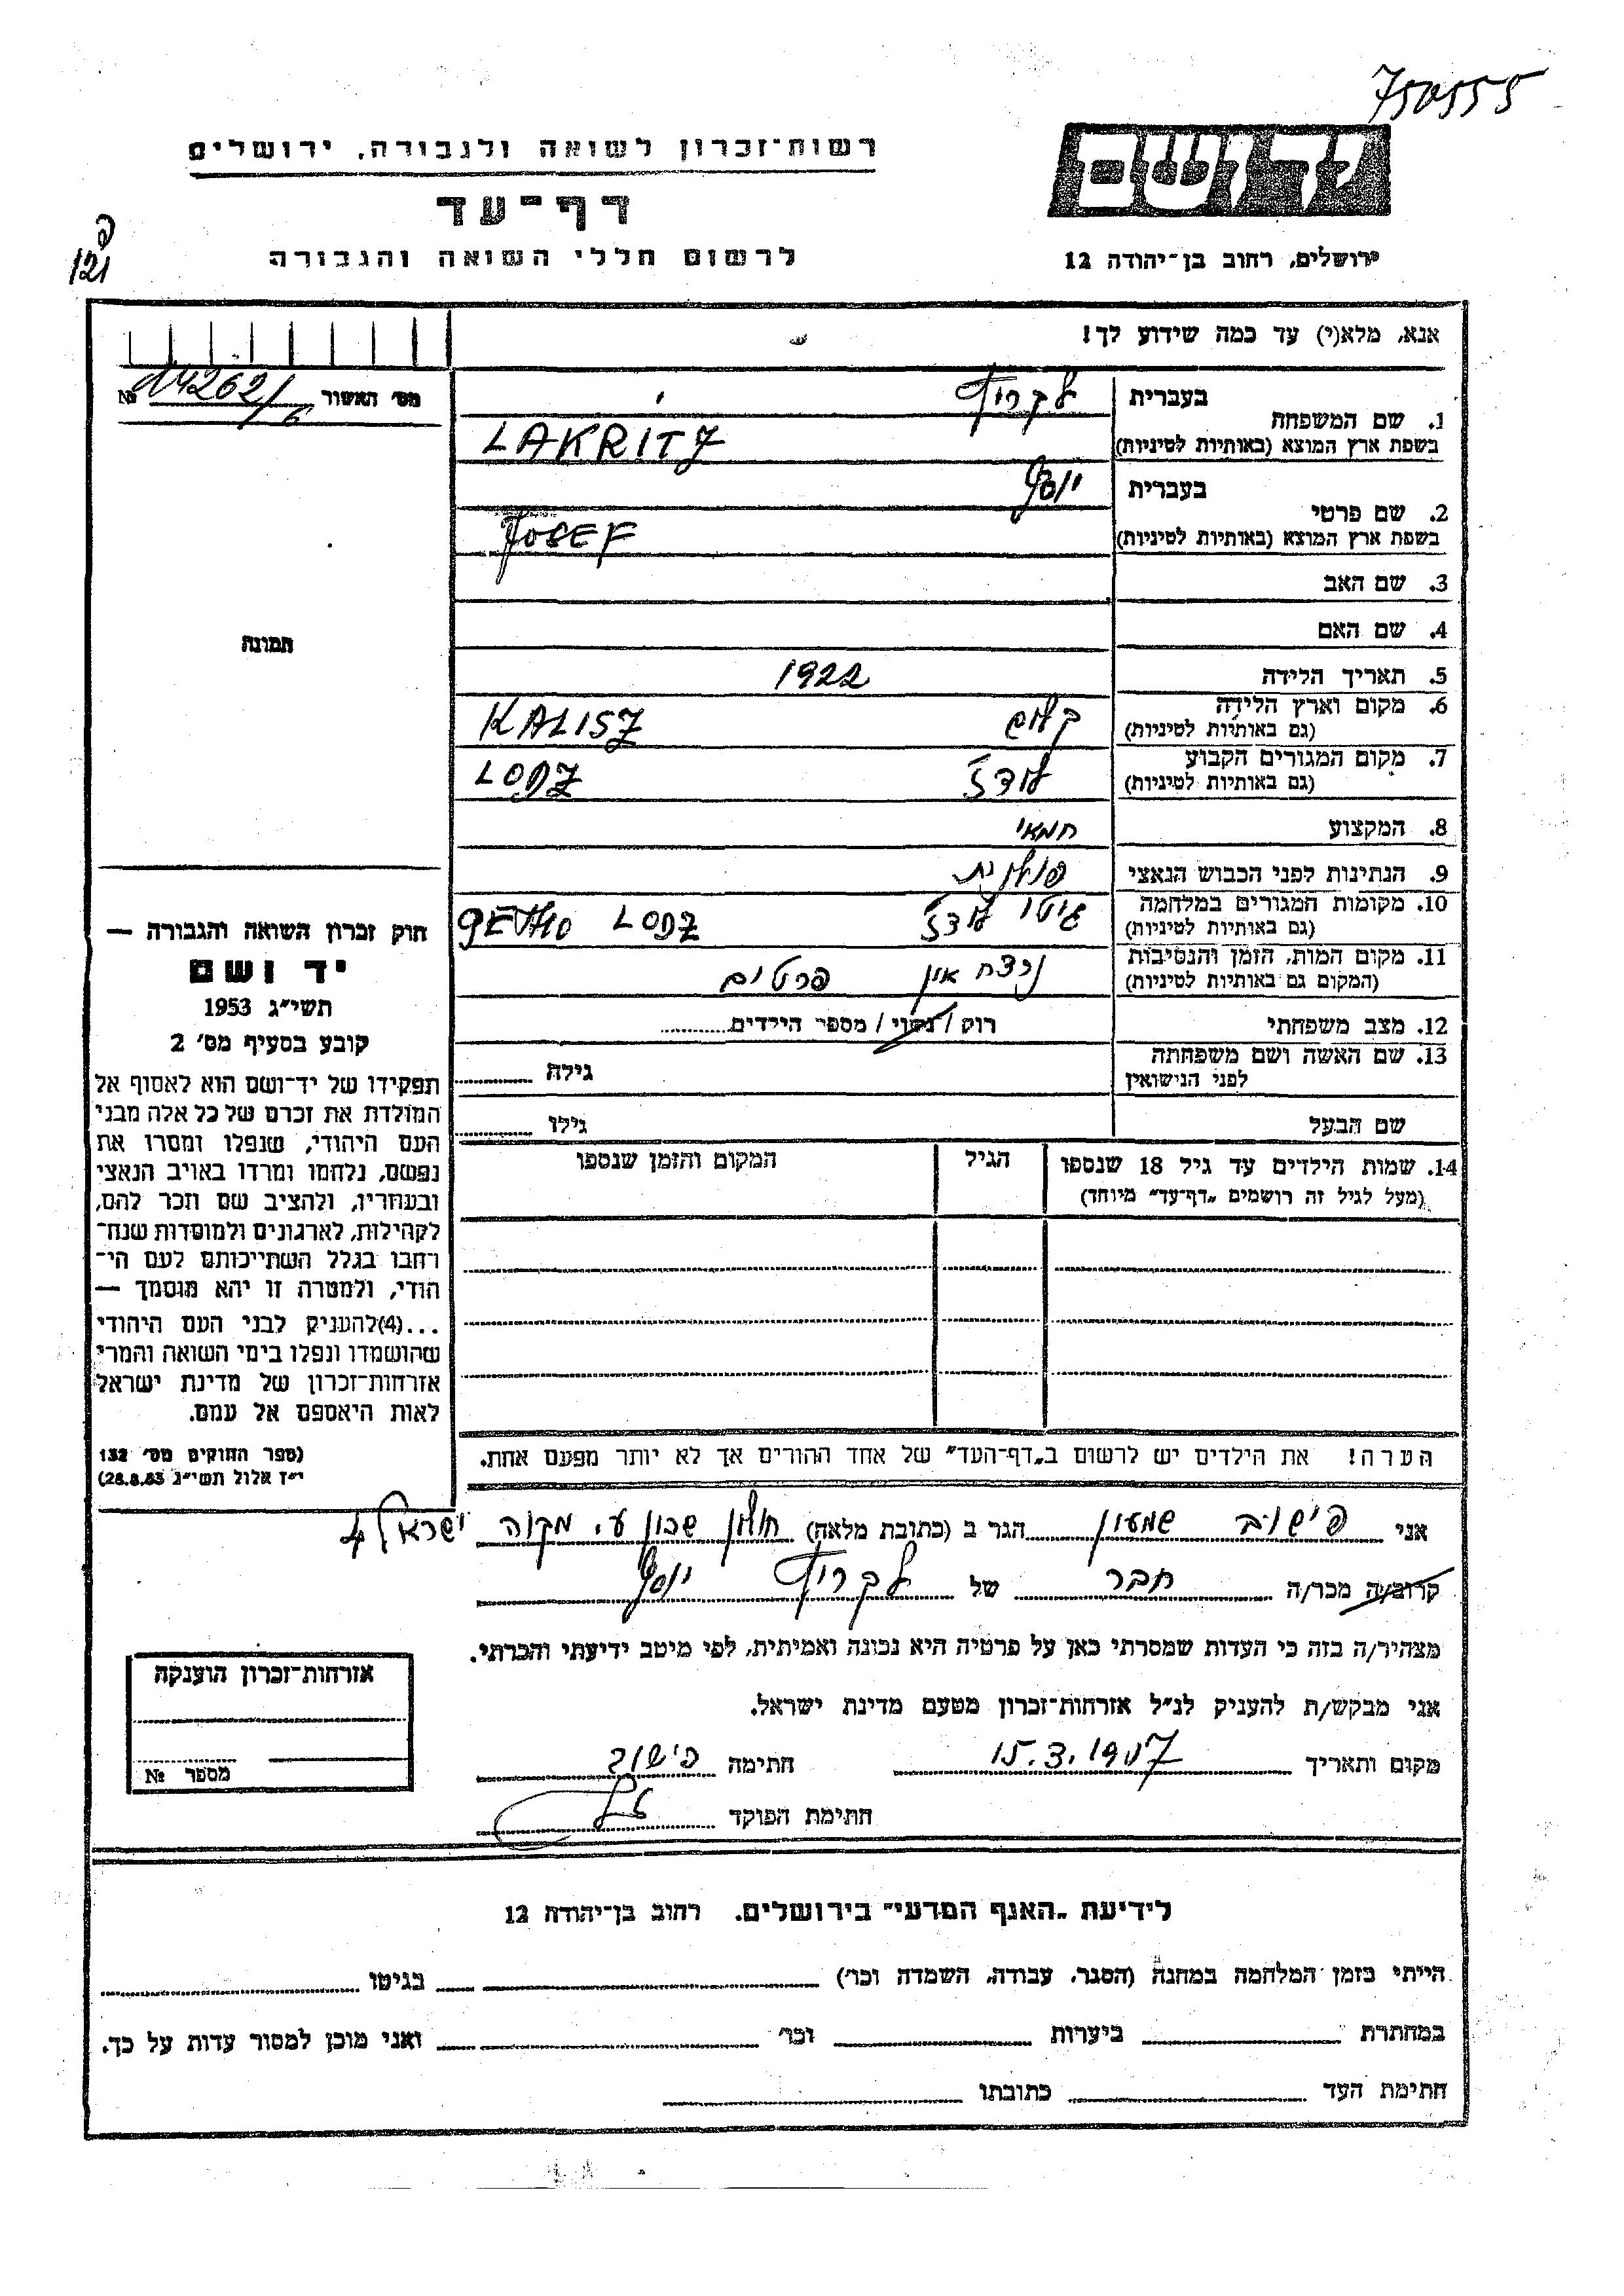 750555
רשות־זכרון לשואה ולגבורה, ירושלים
דף־עד
לרשום חללי השואה והגבורה
ידושם
ירושלים, רחוב בן־יהודה 12
121
אנא, מלא(י) עד כמה שידוע לך!
מס' האשור № 14262/6
1. שם המשפחה בעברית לקריץ
בשפת ארץ המוצא (באותיות לטיניות) LAKRITZ
2. שם פרטי בעברית יוסף
בשפת ארץ המוצא (באותיות לטיניות) JOSEF
3. שם האב
4. שם האם
תמונה
5. תאריך הלידה 1922
6. מקום וארץ הלידה (גם באותיות לטיניות) קליש KALISZ
7. מקום המגורים הקבוע (גם באותיות לטיניות) לודז' LODZ
8. המקצוע חמאי
9. הנתינות לפני הכבוש הנאצי פולנית
10. מקומות המגורים במלחמה (גם באותיות לטיניות) גיטו לודז' GETHO LODZ
11. מקום המות, הזמן והנסיבות (המקום גם באותיות לטיניות) נרצח אין פרטים
12. מצב משפחתי רוק / נשוי / מספר הילדים
13. שם האשה ושם משפחתה לפני הנישואין גילה
שם הבעל גילו
14. שמות הילדים עד גיל 18 שנספו הגיל המקום והזמן שנספו
(מעל לגיל זה רושמים „דף־עד" מיוחד)
הערה! את הילדים יש לרשום ב„דף־העד" של אחד ההורים אך לא יותר מפעם אחת.
חוק זכרון השואה והגבורה —
יד ושם
תשי"ג 1953
קובע בסעיף מס' 2
תפקידו של יד־ושם הוא לאסוף אל
המולדת את זכרם של כל אלה מבני
העם היהודי, שנפלו ומסרו את
נפשם, נלחמו ומרדו באויב הנאצי
ובעוזריו, ולהציב שם וזכר להם,
לקהילות, לארגונים ולמוסדות שנח־
רחבו בגלל השתייכותם לעם הי־
הודי, ולמטרה זו יהא מוסמך —
...(4)להעניק לבני העם היהודי
שהושמדו ונפלו בימי השואה והמרי
אזרחות־זכרון של מדינת ישראל
לאות היאספם אל עמם.
(ספר החוקים מס' 132
י"ז אלול תשי"ג 28.8.53)
אני פישוב שמעון הגר ב (כתובת מלאה) חולון שכון ע. מקוה ישראל 4
קרוב/ה מכר/ה חבר של לקריץ יוסף
מצהיר/ה בזה כי העדות שמסרתי כאן על פרטיה היא נכונה ואמיתית, לפי מיטב ידיעתי והכרתי.
אני מבקש/ת להעניק לנ"ל אזרחות־זכרון מטעם מדינת ישראל.
מקום ותאריך 15.3.1957 חתימה פישוב
חתימת הפוקד
אזרחות־זכרון הוענקה
מספר №
לידיעת „האגף המדעי" בירושלים. רחוב בן־יהודה 12
הייתי בזמן המלחמה במחנה (הסגר, עבודה, השמדה וכו') בגיטו
במחתרת ביערות וכו' ואני מוכן למסור עדות על כך.
חתימת העד כתובתו